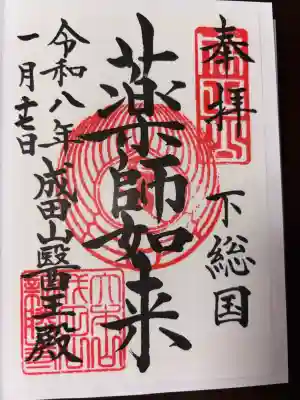 奉拝 下総国
薬師如来
成田山醫王殿
令和八年
一月十七日